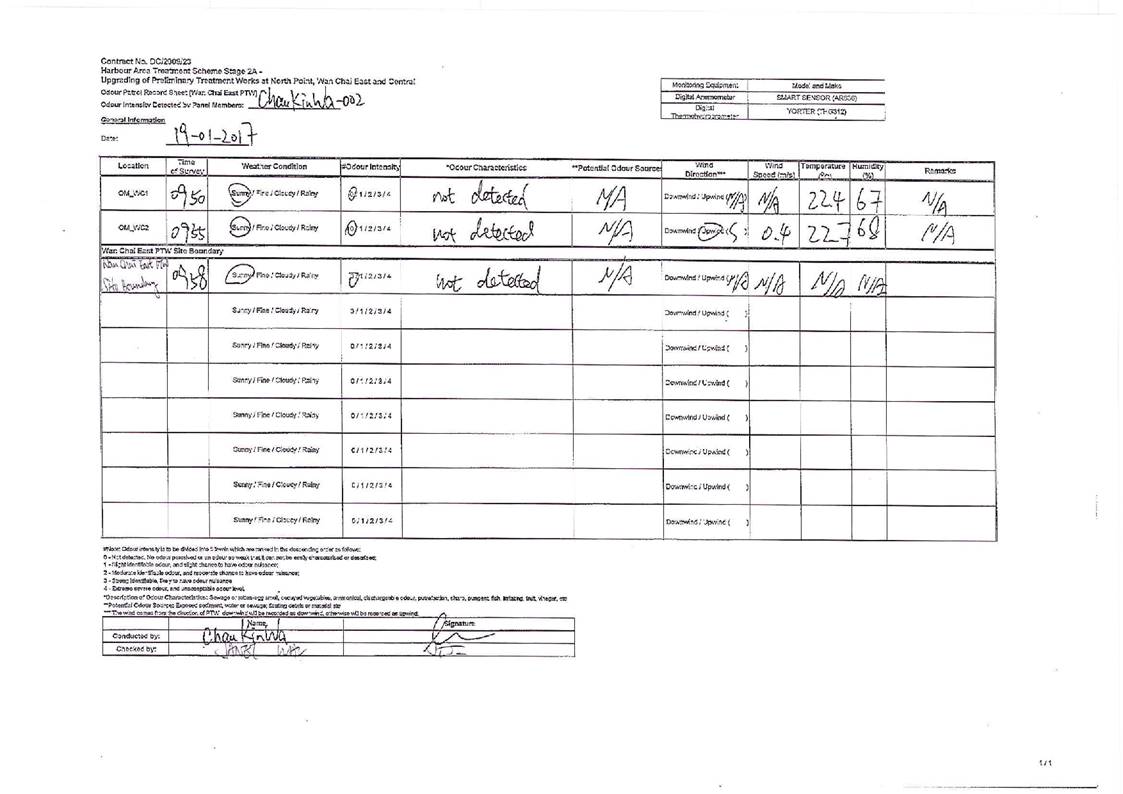 Contract No. DC/2009/23
Harbour Area Treatment Scheme Stage 2A -
Upgrading of Preliminary Treatment Works at North Point, Wan Chai East and Central
Odour Patrol Record Sheet (Wan Chai East PTW)
Odour Intensity Detected by Panel Members: Chau KinWa-002
General Information
Date: 19-01-2017
Monitoring Equipment Model and Make
Digital Anemometer SMART SENSOR (AR836)
Digital
Location Time of Survey Weather Condition #Odour Intensity *Odour Characteristics **Potential Odour Source Wind Direction*** Wind Speed (m/s) Temperature Humidity (%) Remarks
OM_WC1 0950 Sunny / Fine / Cloudy / Rainy 0/1/2/3/4 not detected N/A Downwind / Upwind (N/A) N/A 22.4 67 N/A
OM_WC2 0955 Sunny / Fine / Cloudy / Rainy 0/1/2/3/4 not detected N/A Downwind / Upwind (S) 0.4 22.7 68 N/A
Wan Chai East PTW Site Boundary
Wan Chai East PTW Site Boundary 0958 Sunny / Fine / Cloudy / Rainy 0/1/2/3/4 not detected N/A Downwind / Upwind (N/A) N/A N/A N/A
Sunny / Fine / Cloudy / Rainy 0/1/2/3/4 Downwind / Upwind ( )
Sunny / Fine / Cloudy / Rainy 0/1/2/3/4 Downwind / Upwind ( )
Sunny / Fine / Cloudy / Rainy 0/1/2/3/4 Downwind / Upwind ( )
Sunny / Fine / Cloudy / Rainy 0/1/2/3/4 Downwind / Upwind ( )
Sunny / Fine / Cloudy / Rainy 0/1/2/3/4 Downwind / Upwind ( )
Sunny / Fine / Cloudy / Rainy 0/1/2/3/4 Downwind / Upwind ( )
Sunny / Fine / Cloudy / Rainy 0/1/2/3/4 Downwind / Upwind ( )
#Note: Odour intensity is to be divided into 5 levels which are ranked in the descending order as follows:
0 - Not detected. No odour perceived or an odour so weak that it can not be easily characterised or described;
1 - Slight identifiable odour, and slight chance to have odour nuisance;
2 - Moderate identifiable odour, and moderate chance to have odour nuisance;
3 - Strong identifiable, likely to have odour nuisance
4 - Extreme severe odour, and unacceptable odour level.
*Description of Odour Characteristics: Sewage or rotten-egg smell, decayed vegetables, ammonical, dischargeable odour, putrefaction, sharp, pungent, fish, irritating, fruit, vinegar, etc
**Potential Odour Source: Exposed sediment, water or sewage; floating debris or material etc
***The wind comes from the direction of PTW downwind will be recorded as downwind, otherwise will be recorded as upwind.
Name Signature
Conducted by: Chau KinWa
Checked by:
1 / 1